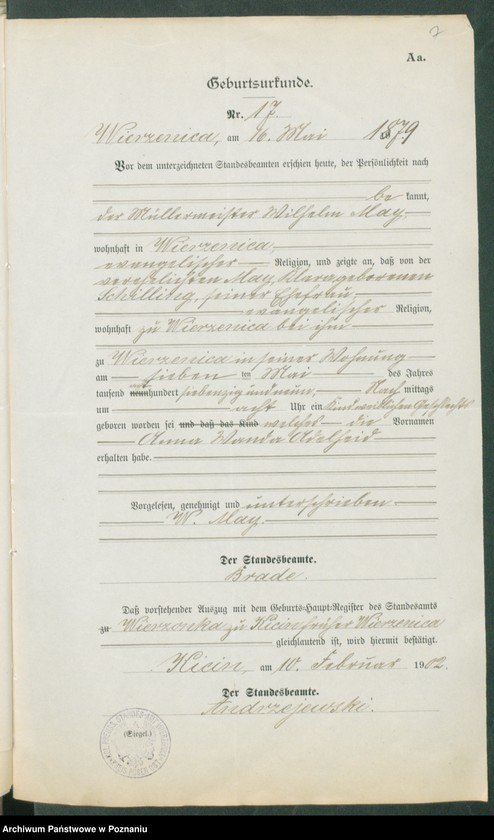 7
Aa.
Geburtsurkunde.
Nr. 17
Wierzenica, am 16. Mai 1879
Vor dem unterzeichneten Standesbeamten erschien heute, der Persönlichkeit nach
be kannt,
der Müllermeister Wilhelm May
wohnhaft in Wierzenica
evangelischer Religion, und zeigte an, daß von der
verehelichten May, Klara geborenen
Schilling, seiner Ehefrau
evangelischer Religion,
wohnhaft zu Wierzenica bei ihm
zu Wierzenica in seiner Wohnung
am sieben ten Mai des Jahres
tausend neun acht hundert siebenzig und neun, Nach mittags
um acht Uhr ein Kind weiblichen Geschlechts
geboren worden sei und daß das Kind welches die Vornamen
Anna Wanda Adelheid
erhalten habe.
Vorgelesen, genehmigt und unterschrieben
W. May.
Der Standesbeamte.
Brade.
Daß vorstehender Auszug mit dem Geburts-Haupt-Register des Standesamts
zu Wierzonka zu Kicin früher Wierzenica
gleichlautend ist, wird hiermit bestätigt.
Kicin, am 10. Februar 1902.
Der Standesbeamte.
Andrzejewski.
(Siegel.)
Archiwum Państwowe w Poznaniu